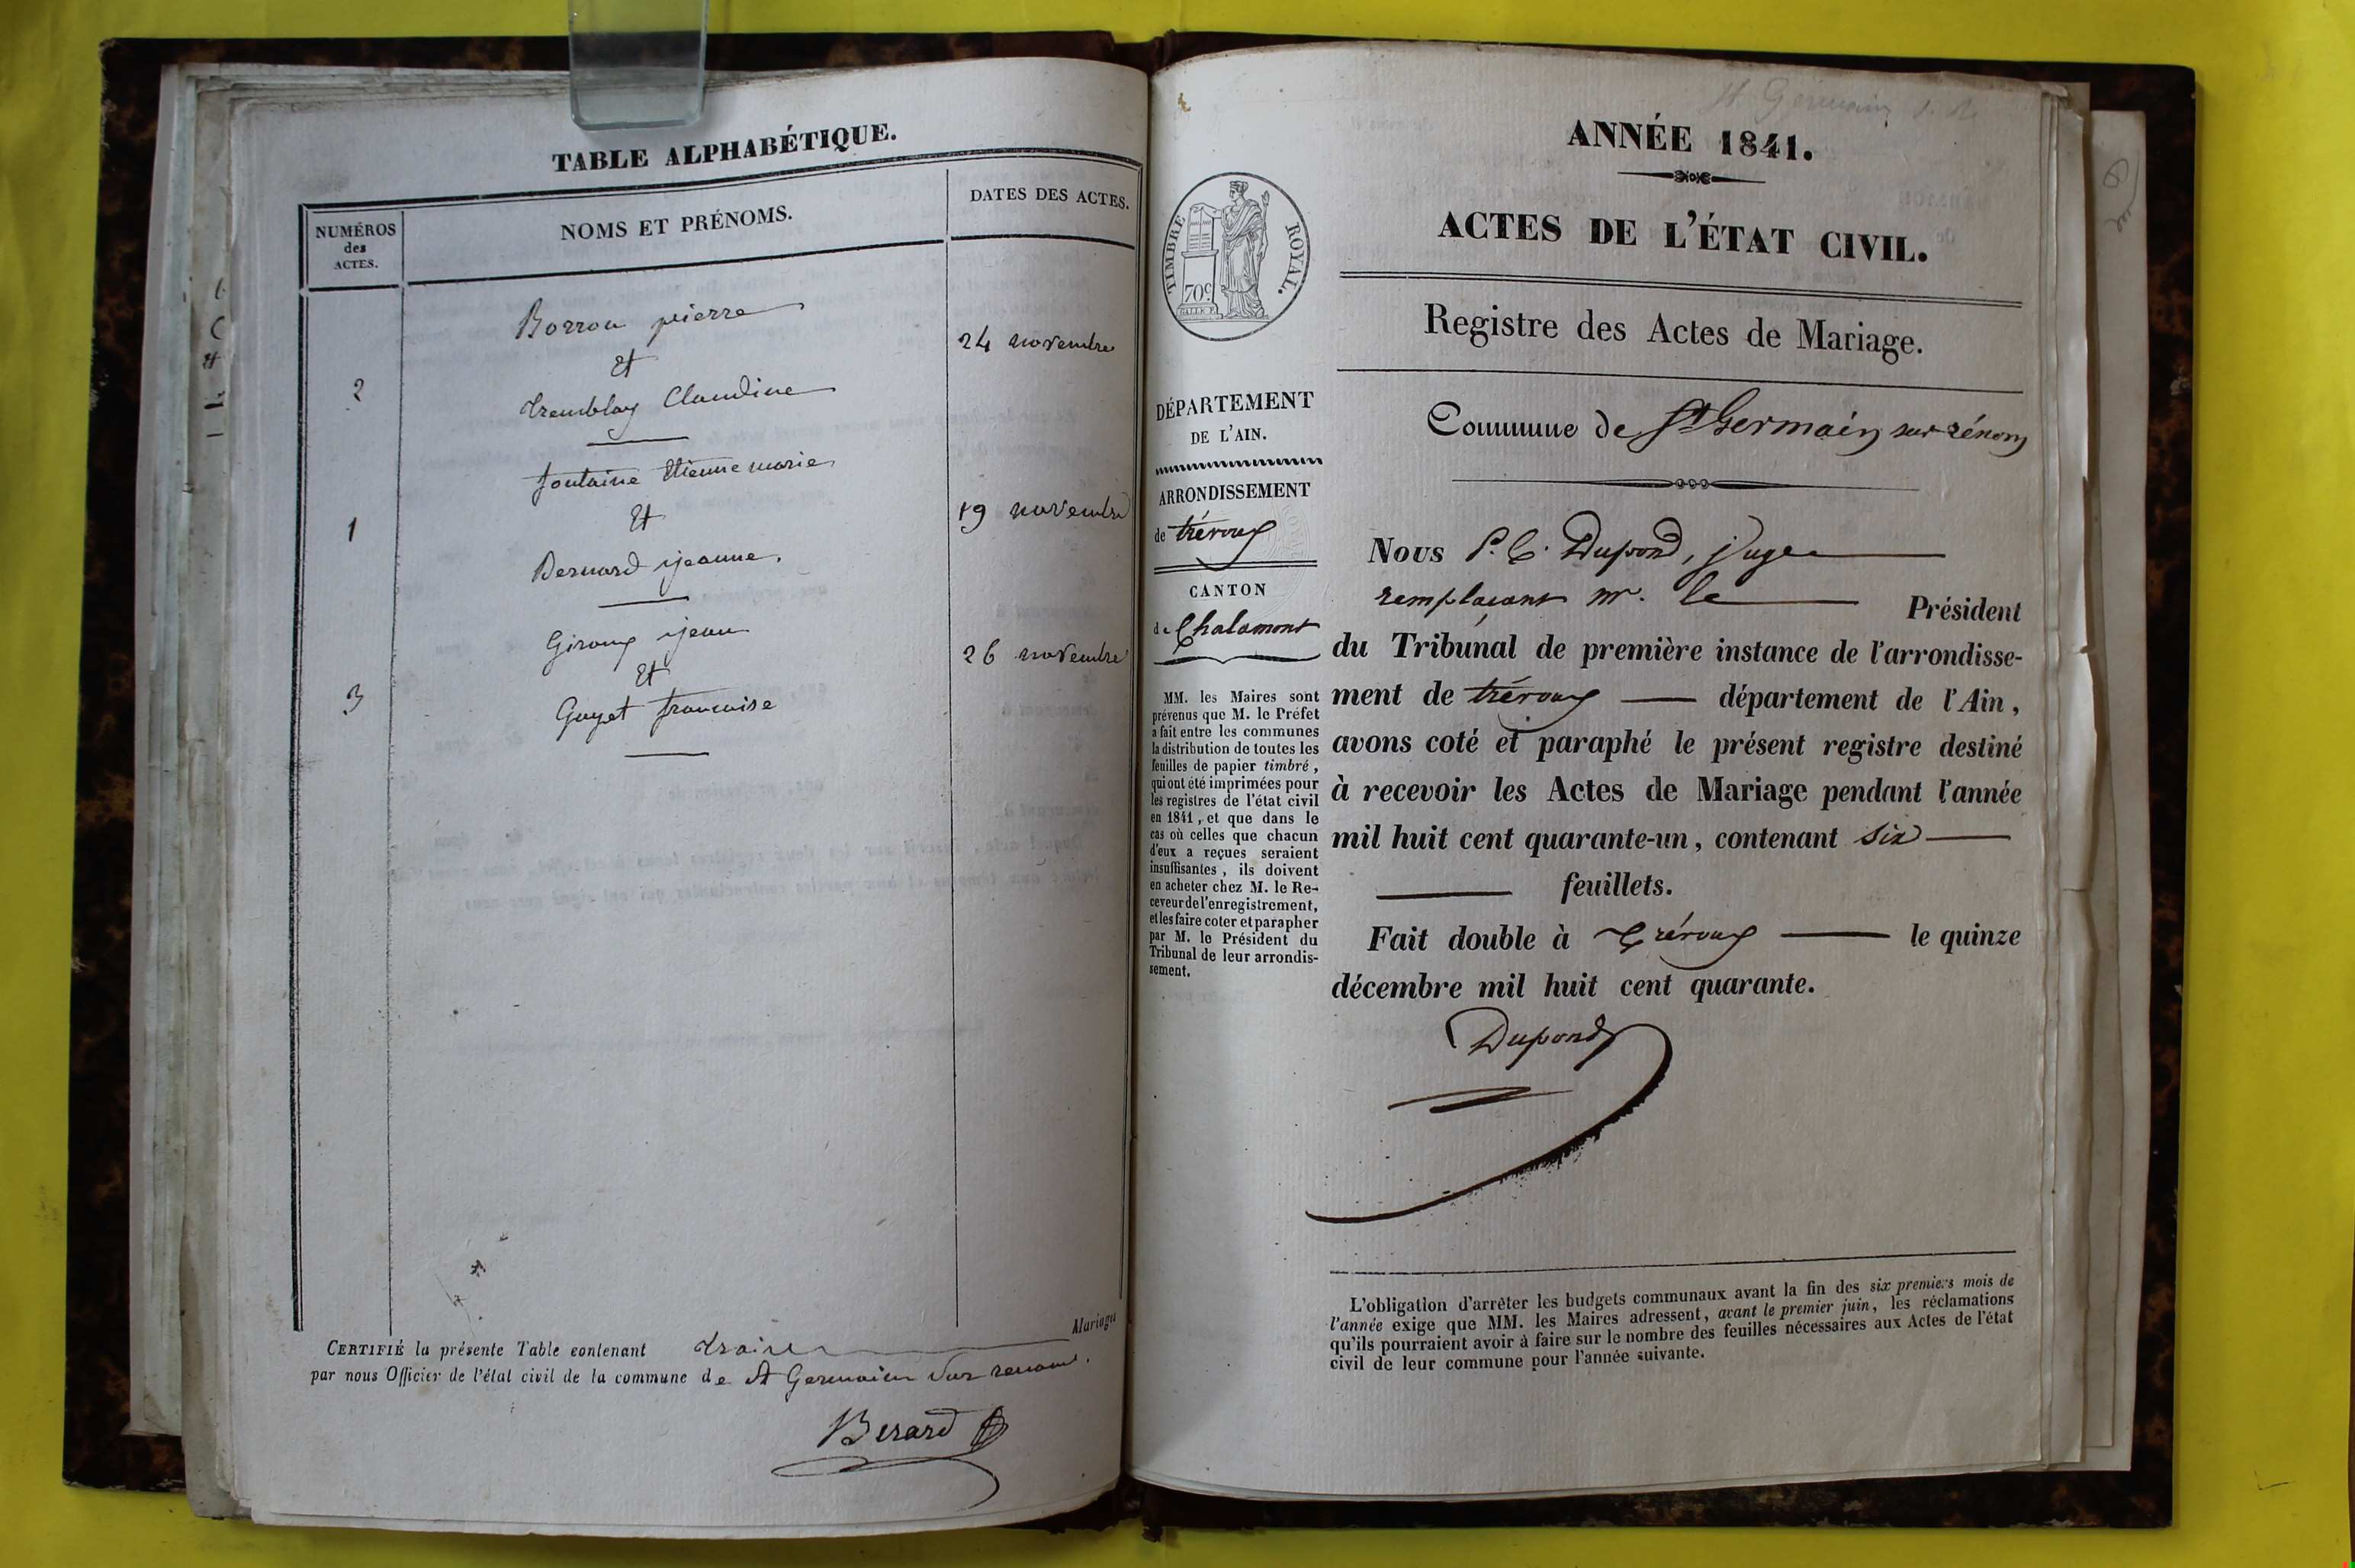 TABLE ALPHABÉTIQUE.
NUMÉROS
des
ACTES.
NOMS ET PRÉNOMS.
DATES DES ACTES.
Borron pierre
Et
24 novembre
2
tremblay Claudine
fontaine Etienne marie
Et
19 novembre
1
Bernard jeanne.
Giroux jean
Et
26 novembre
3
Guyet francoise
Mariages
CERTIFIÉ la présente Table contenant trois
par nous Officier de l'état civil de la commune de St Germain sur renom.
Berard
St Germain s. R.
ANNÉE 1841.
ACTES DE L'ÉTAT CIVIL.
Registre des Actes de Mariage.
TIMBRE ROYAL.
70c
DÉPARTEMENT
DE L'AIN.
ARRONDISSEMENT
de trévoux
CANTON
de Chalamont
MM. les Maires sont
prévenus que M. le Préfet
a fait entre les communes
la distribution de toutes les
feuilles de papier timbré,
qui ont été imprimées pour
les registres de l'état civil
en 1841, et que dans le
cas où celles que chacun
d'eux a reçues seraient
insuffisantes, ils doivent
en acheter chez M. le Re-
ceveur de l'enregistrement,
et les faire coter et parapher
par M. le Président du
Tribunal de leur arrondis-
sement.
Commune de St Germain sur rénom
Nous P. C. Dupond, juge
remplaçant mr. le Président
du Tribunal de première instance de l'arrondisse-
ment de trévoux département de l'Ain,
avons coté et paraphé le présent registre destiné
à recevoir les Actes de Mariage pendant l'année
mil huit cent quarante-un, contenant six
feuillets.
Fait double à Trévoux le quinze
décembre mil huit cent quarante.
Dupond
L'obligation d'arrêter les budgets communaux avant la fin des six premiers mois de
l'année exige que MM. les Maires adressent, avant le premier juin, les réclamations
qu'ils pourraient avoir à faire sur le nombre des feuilles nécessaires aux Actes de l'état
civil de leur commune pour l'année suivante.